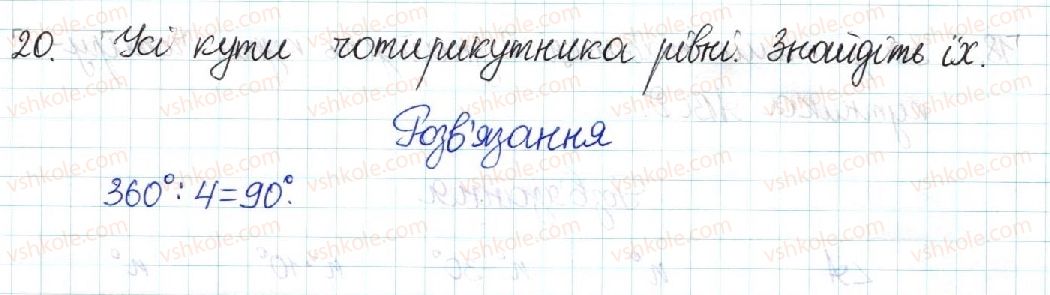 20. Усі кути чотирикутника рівні. Знайдіть їх.
Розв'язання
360°: 4=90°.